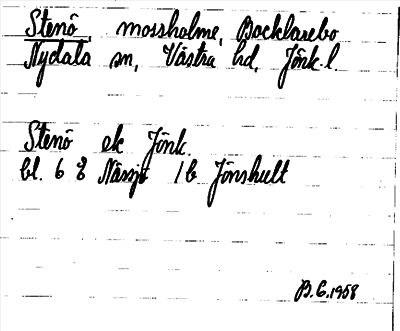 Stenö, mossholme, Bocklarebo
Nydala sn, Västra hd, Jönk. l.
Stenö ek Jönk.
bl. 6 E Nässjö 1b Jönshult
B.G. 1958